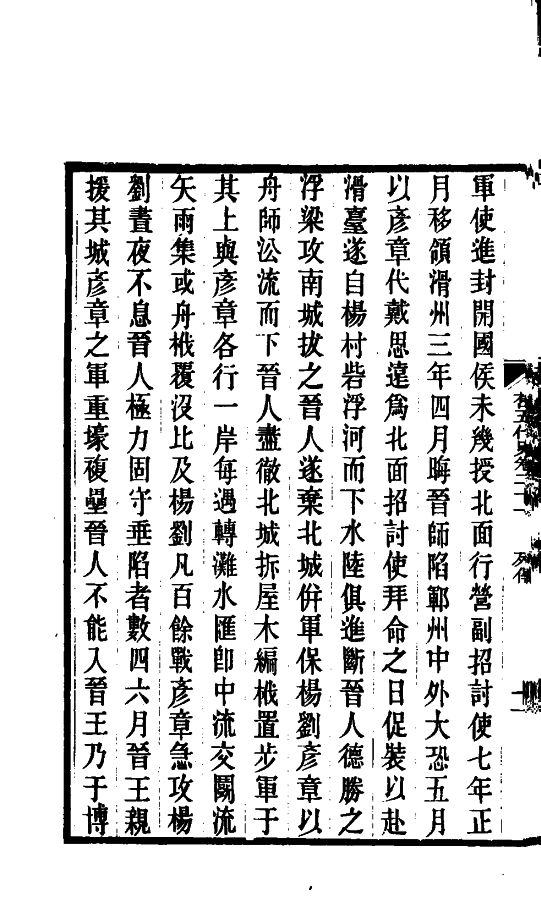 軍使進封開國侯未幾授北面行營副招討使七年正
月移領滑州三年四月晦晉師陷鄆州中外大恐五月
以彥章代戴思遠爲北面招討使拜命之日促裝以赴
滑臺遂自楊村砦浮河而下水陸俱進斷晉人德勝之
浮梁攻南城拔之晉人遂棄北城併軍保楊劉彥章以
舟師沿流而下晉人盡徹北城拆屋木編栰置步軍于
其上與彥章各行一岸每遇轉灘水匯卽中流交鬭流
矢雨集或舟栰覆沒比及楊劉凡百餘戰彥章急攻楊
劉晝夜不息晉人極力固守垂陷者數四六月晉王親
援其城彥章之軍重壕複壘晉人不能入晉王乃于博